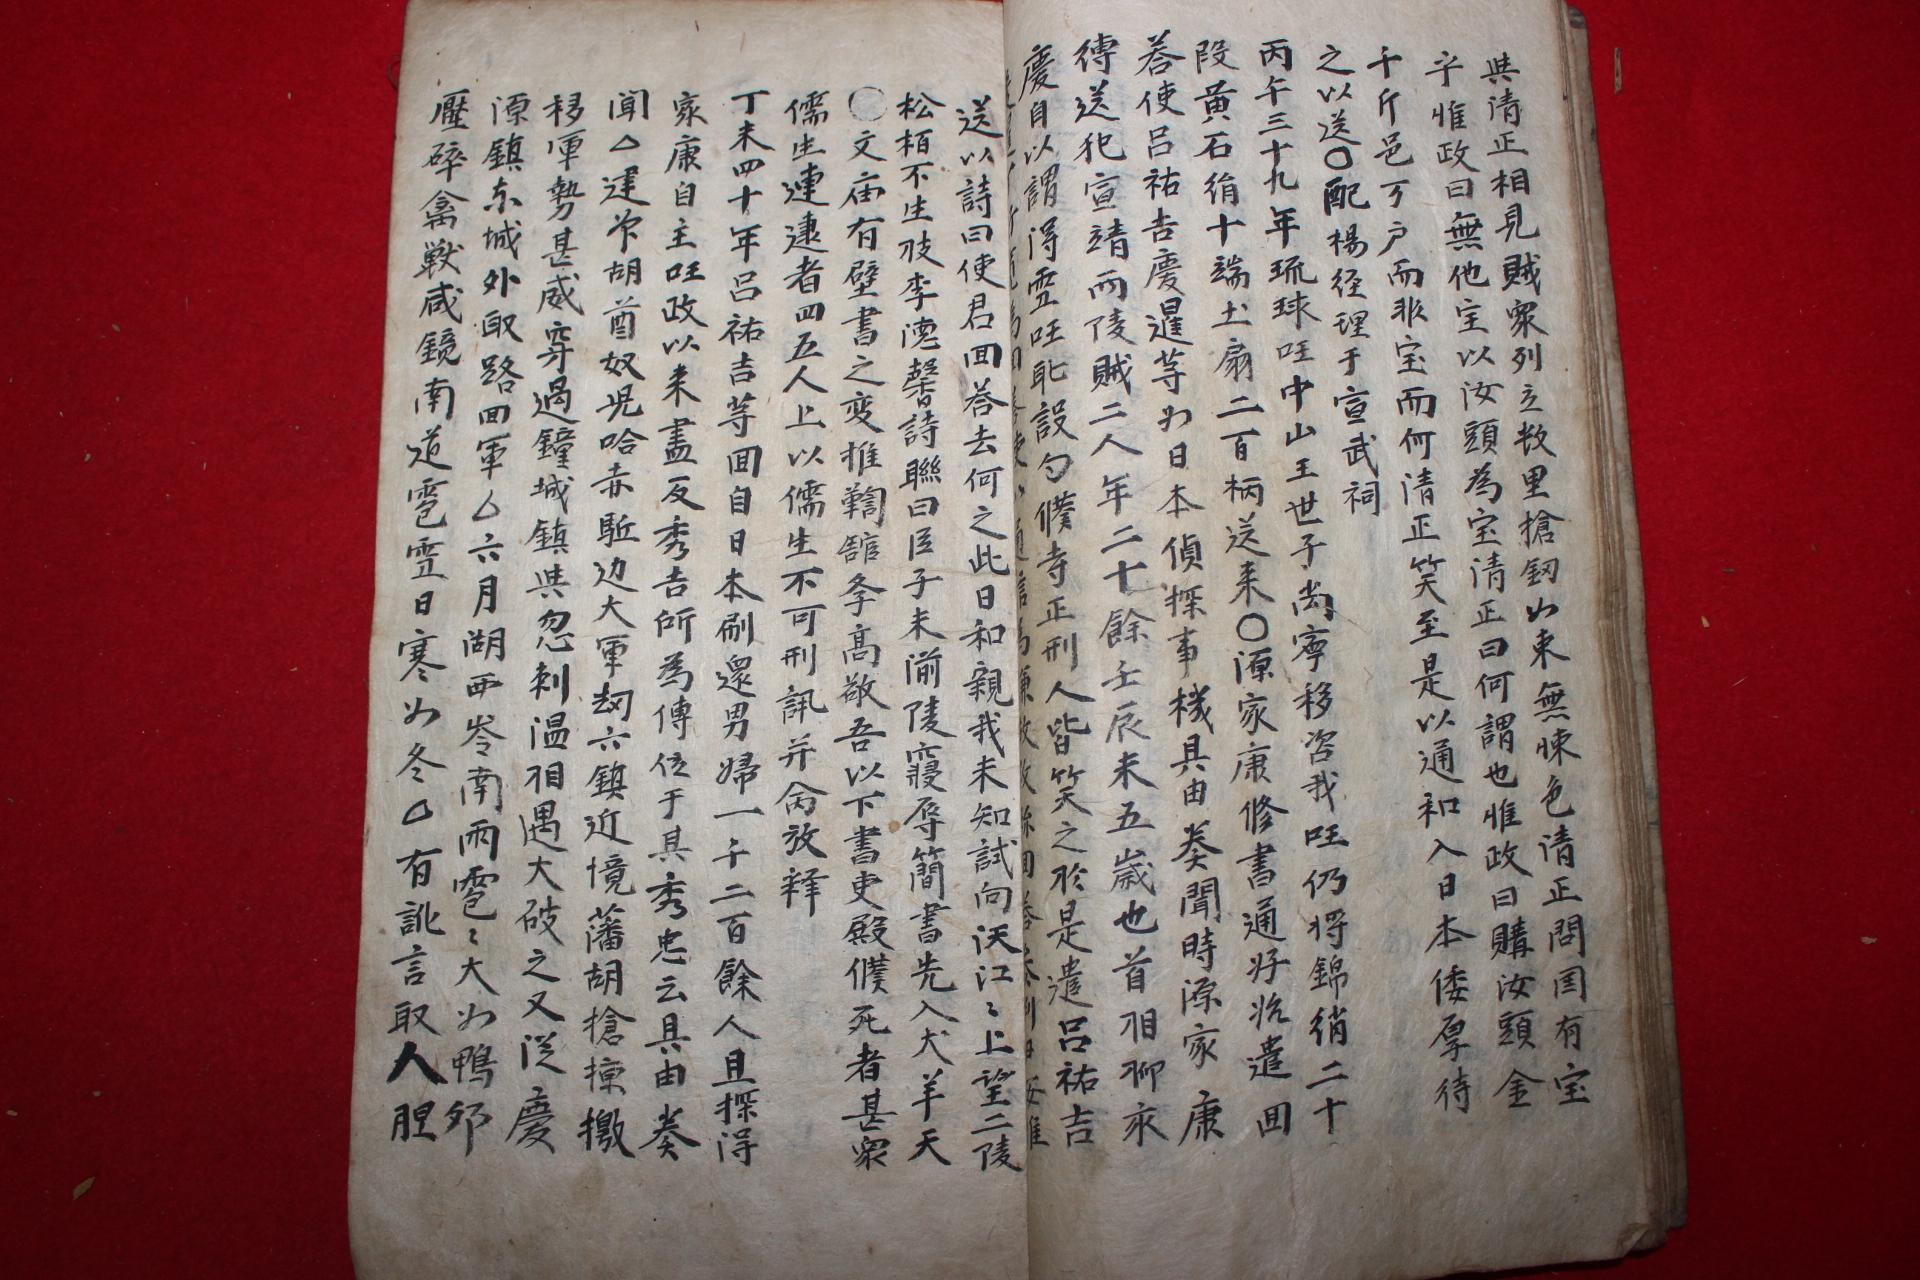 與清正相見賊衆列立数里搶釼如束無悚色淸正問國有宝
乎惟政曰無他宝以汝頭為宝清正曰何謂也惟政曰購汝頭金
千斤邑万户而非宝而何清正笑至是以通和入日本倭厚待
之以送〇配楊経理于宣武祠
丙午三十九年琉球王中山王世子尚寧移咨我王仍將錦綃二十
段黄石綃十端土扇二百柄送来〇源家康修書通好
荅使呂祐吉慶暹等如日本偵探事機具由奏聞時源家康
縛送犯宣靖兩陵賊二人年二十餘壬辰未五歲也首相聊
慶自以謂得雪王耻設勺僕寺正刑人皆笑之於是遣呂祐吉
送以詩曰使君回荅去何之此日和親我未知試向江〻上望二陵
松栢不生枝李德馨詩聯曰臣子未湔陵寢辱簡書先入犬羊天
〇文庙有壁書之変推鞫舘李高敬吾以下書吏殿僕死者甚衆
儒生連逮者四五人上以儒生不可刑訊并命放釋
丁未四十年呂祐吉等回自日本刷還男婦一千二百餘人且探得
家康自主王政以来盡反秀吉所為傳位于其秀忠云具由奏
聞△建州胡酋奴児哈赤駈边大軍刼六鎮近境藩胡搶掠撤
移軍勢甚威穿過鐘城鎮與忽刺温相遇大破之又從慶
源鎮东城外取路回軍△六月湖西岺南雨雹〻大如鴨卵
壓碎禽獣咸鏡南道雹雪日寒如冬△有訛言取人胆